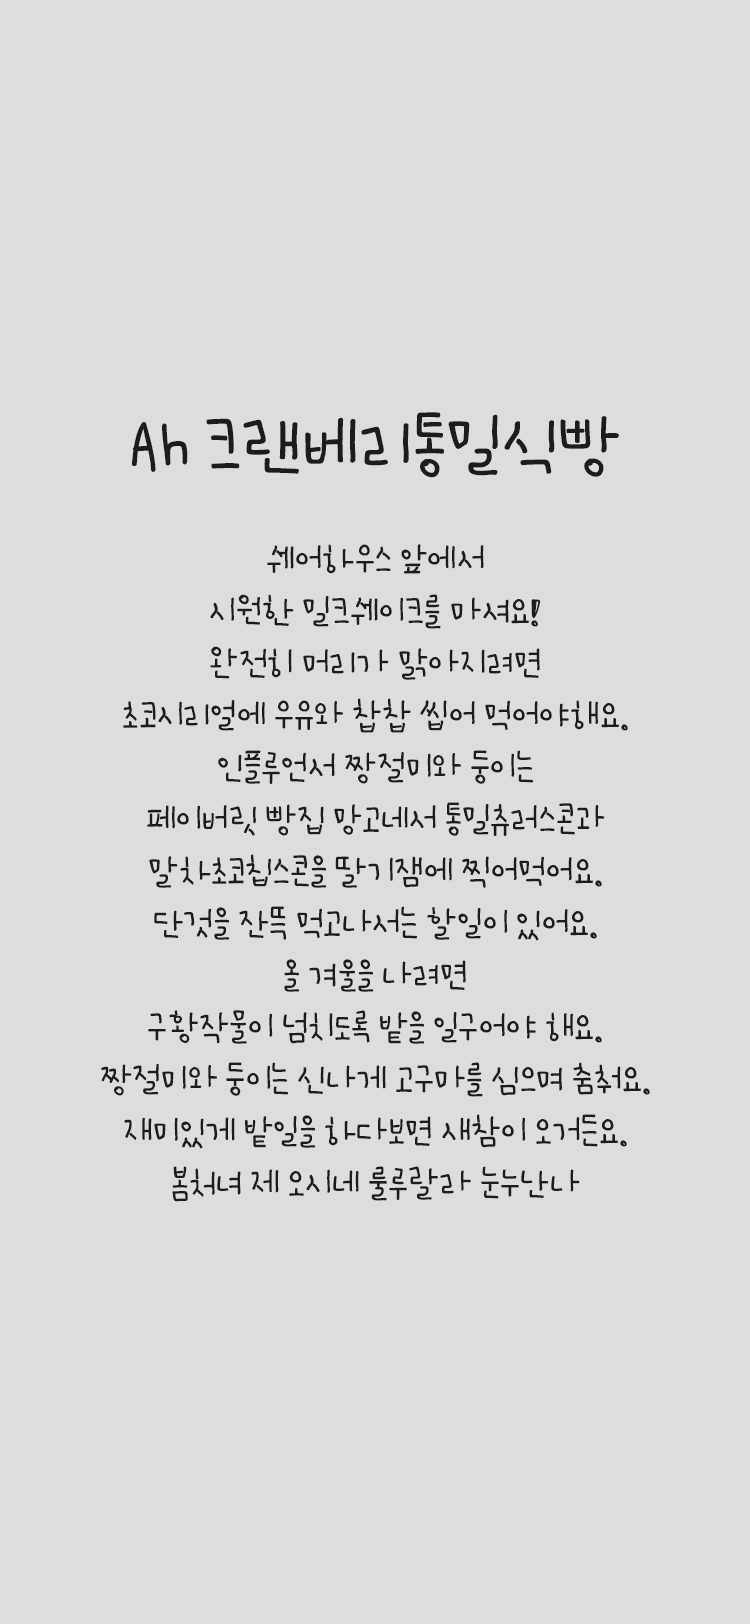 Ah 크랜베리통밀식빵
쉐어하우스 앞에서
시원한 밀크쉐이크를 마셔요!
완전히 머리가 맑아지려면
초코시리얼에 우유와 찹찹 씹어 먹어야해요.
인플루언서 짱절미와 둥이는
페이버릿 빵집 망고네서 통밀츄러스콘과
말차초코칩스콘을 딸기잼에 찍어먹어요.
단것을 잔뜩 먹고나서는 할일이 있어요.
올 겨울을 나려면
구황작물이 넘치도록 밭을 일구어야 해요.
짱절미와 둥이는 신나게 고구마를 심으며 춤춰요.
재미있게 밭일을 하다보면 새참이 오거든요.
봄처녀 제 오시네 룰루랄라 눈누난나